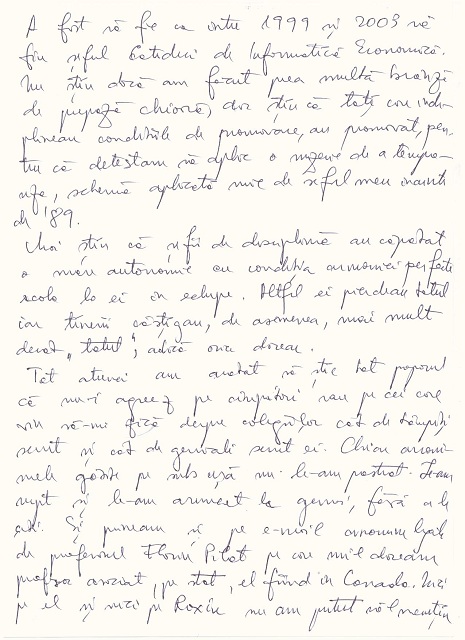 A fost să fie ca între 1999 și 2003 să
fiu șeful Catedrei de Informatică Economică.
Nu știu dacă am făcut prea multă brânză
de chioară, dar știu că toți cei care înde-
plineau condițiile de promovare, au promovat, pen-
tru că detestam să aplic o de a tempo-
, schemă aplicată mie de șeful meu înainte
de '89.
Mai știu că șefii de disciplină au căpătat
o mare autonomie cu condiția armoniei perfecte
acolo la ei în echipe. Altfel ei pierdeau totul
iar tinerii câștigau, de asemenea, mai mult
decât „totul”, adică ce doreau.
Tot atunci am arătat să știe tot poporul
că nu-i agreez pe sau pe cei care
vin să-mi despre colegii lor cât de tâmpiți
sunt și cât de geniali sunt ei. Chiar anoni-
mele găsite pe sub ușă nu le-am păstrat. Le-am
rupt și le-am aruncat la gunoi, fără a le
citi. Și puneam și pe e-mail anonime
de profesorul Florin Pilat pe care mi-l doream
profesor asociat, pe stat, el fiind în Canada. Nici
pe el și nici pe Roxin nu am putut să-l